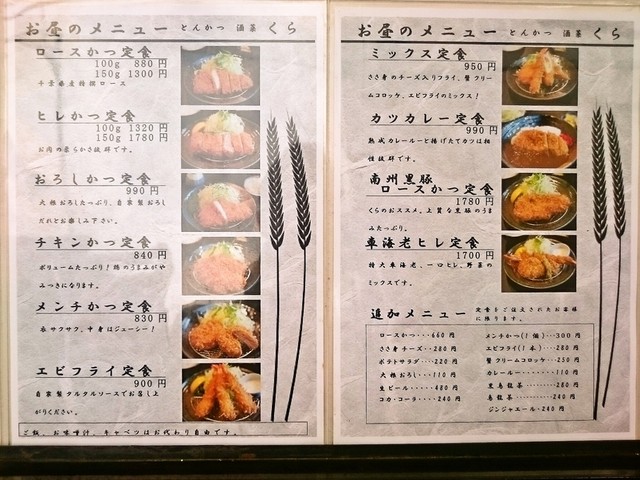 お昼のメニュー とんかつ 酒菜 くら
ロースかつ定食
100g 880円
150g 1300円
千葉県産特撰ロース
ヒレかつ定食
100g 1320円
150g 1780円
お肉の柔らかさ抜群です。
おろしかつ定食
990円
大根おろしたっぷり、自家製おろし
だれとお楽しみ下さい。
チキンかつ定食
840円
ボリュームたっぷり!鶏のうまみがや
みつきになります。
メンチかつ定食
830円
衣サクサク、中身はジューシー!
エビフライ定食
900円
自家製タルタルソースでお召し上
がりください。
ご飯、お味噌汁、キャベツはお代わり自由です。
お昼のメニュー とんかつ 酒菜 くら
ミックス定食
950円
ささ身のチーズ入りフライ、蟹クリー
ムコロッケ、エビフライのミックス!
カツカレー定食
990円
熟成カレールーと揚げたてカツは相
性抜群です。
南州黒豚
ロースかつ定食
1780円
くらのおススメ、上質な黒豚のうま
みたっぷり。
車海老ヒレ定食
1700円
特大車海老、一口ヒレ、野菜の
ミックスです。
追加メニュー 定食をご注文されたお客様
に限ります。
ロースかつ・・・660円
ささ身チーズ・・280円
ポテトサラダ・・・220円
大根おろし・・・110円
生ビール・・・・480円
コカ・コーラ・・・・240円
メンチかつ(1個)・・・300円
エビフライ(1本)・・・280円
蟹クリームコロッケ・・250円
カレールー・・・・・110円
黒烏龍茶・・・・・・280円
烏龍茶・・・・・・・240円
ジンジャエール・240円